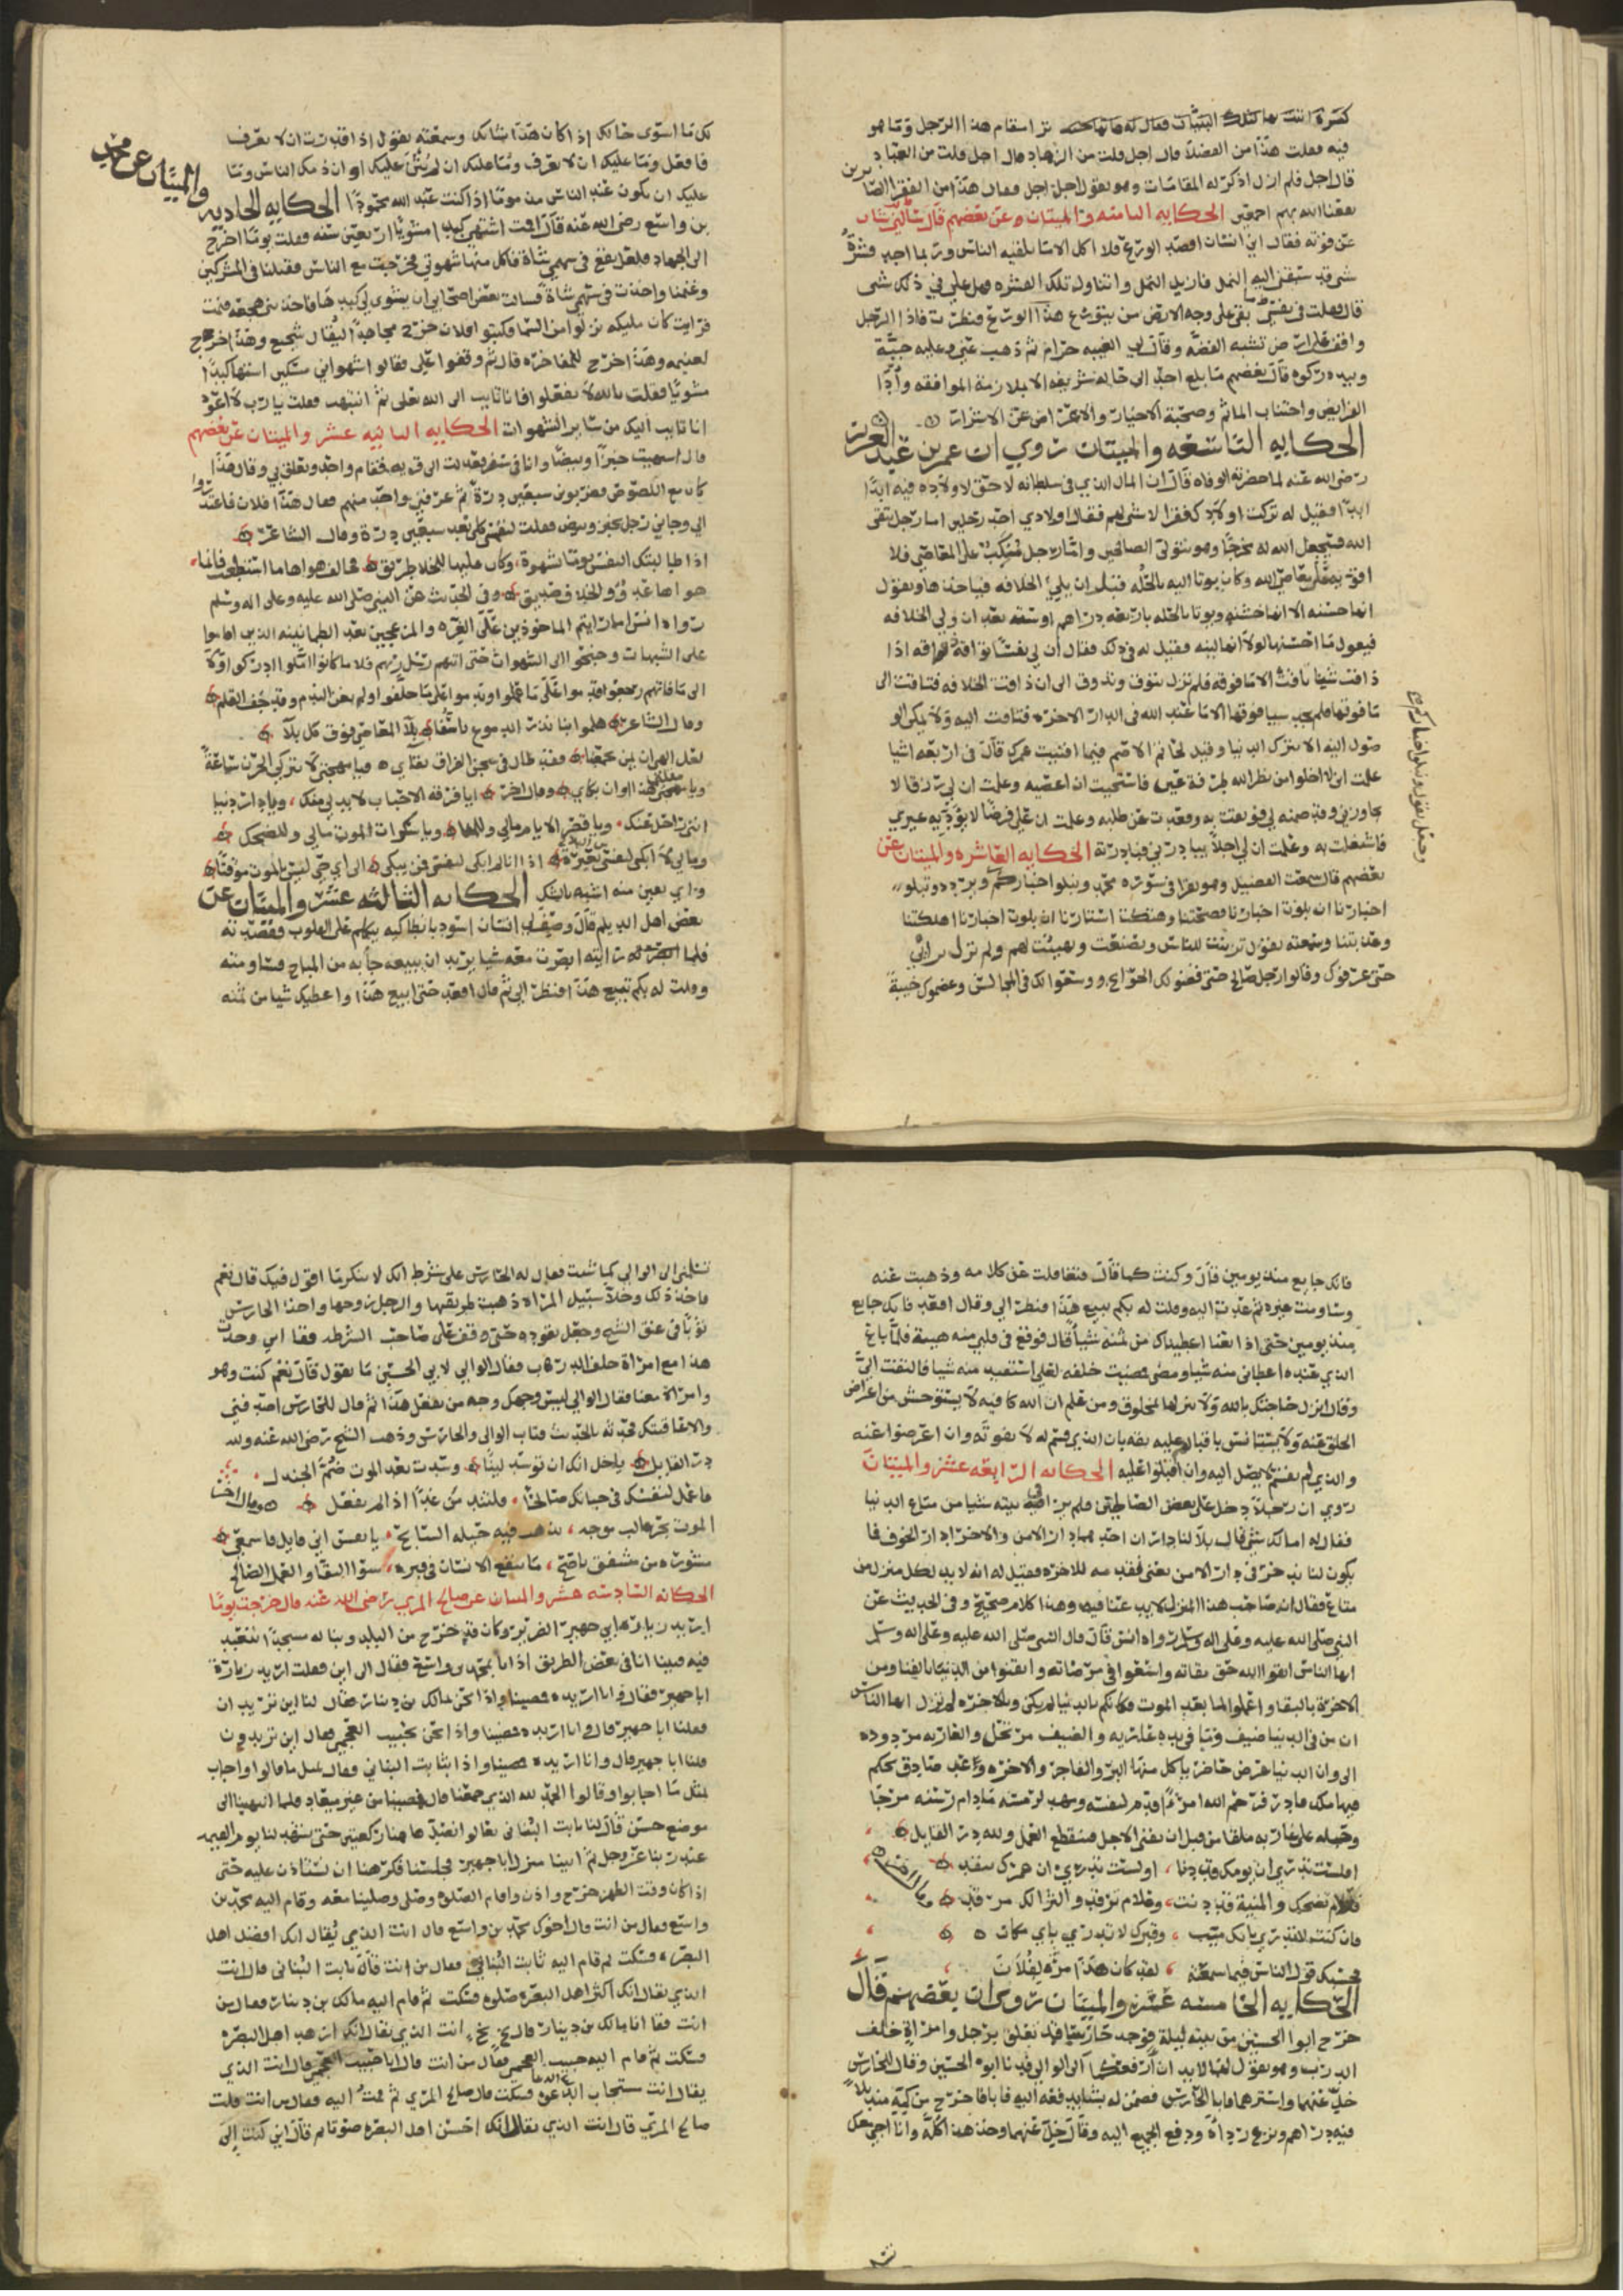 فيه فقلت هذا من الفضلا قال اجل قلت من الزهاد قال اجل قلت من العباد
قال اجل فلم ازل اذكر له المقامات وهو يقول اجل اجل فقال هذا من الفقرا الصابرين
نفعنا الله بهم اجمعين الحكايه الثامنه والميتان عن بعضهم قال سالني شاب
عن قوته فقال اني انسان اقصد الورع فلا اكل الا ما يلقيه الناس وربما اجد قشرة
شي قد سبقني اليه النمل فازيل النمل واتناول تلك القشره فهل علي في ذلك شي
قال فقلت في نفسي بقي على وجه الارض من يتورع هذا الورع فنظرت فاذا الرجل
واقف على ارض تشبه الفضه وقال لي الغيبه حرام ثم ذهب عني وعليه جبة
وبيده ركوه قال بعضهم ما بلغ احد الى حاله شريفه الا بملازمة الموافقه واداا
الفرايض واجتناب الماثم وصحبة الاخيار والاعراض عن الاشرار
الحكايه التاسعه والميتان روي ان عمر بن عبد العزيز
رضي الله عنه لما حضرته الوفاه قال ان المال الذي في سلطانه لا حق لاولاده فيه ابدا
ابدا فقيل له تركت اولادك فقرا لا شي لهم فقال اولادي احد رجلين اما رجل يتقي
الله فيجعل الله له مخرجا وهو يتولى الصالحين واما رجل مكب على المعاصي فلا
اقويه على معاصي الله وكان يوتا اليه بالحله قبل ان يلي الخلافه فياخذها ويقول
انها حسنه الا انها خشنه ويوتا بالحله باربعه دراهم او سته بعد ان ولي الخلافه
فيقول ما احسنها لولا انها لينه فقيل له في ذلك فقال ان لي نفسا تواقه ذواقه اذا
ذاقت شيئا تاقت الى ما فوقه فلم تزل تتوق وتذوق الى ان ذاقت الخلافه فتاقت الى
ما فوقها فلم تجد شيا فوقها الا ما عند الله في الدار الاخره فتاقت اليه ولا يمكن الو
صول اليه الا بترك الدنيا وقيل لحاتم الاصم فيما افنيت عمرك قال في اربعه اشيا
علمت اني لا اخلوا من نظر الله طرفة عين فاستحييت ان اعصيه وعلمت ان لي رزقا لا
يجاوزني وقد ضمنه لي فوثقت به وقعدت عن طلبه وعلمت ان علي فرضا لا يؤديه غيري
فاشتغلت به وعلمت ان لي اجلا يبادرني فبادرته الحكايه العاشره والميتان عن
بعضهم قال سمعت الفضيل وهو يقرا في سورة محمد ونبلوا اخباركم ويردد ونبلو
اخبارنا ان بلوت اخبارنا فضحتنا وهتكت استارنا ان بلوت اخبارنا اهلكتنا
وعذبتنا وسمعته يقول تزينت للناس وتصنعت وتهيئت لهم ولم تزل تراي
حتى عرفوك وقالوا رجل صالح حتى قضوا لك الحوايج ووسعوا لك في المجالس وعظموك خيبة
وجعل يقول ونبلوا اخباركم
لك ما اسوى حالك اذا كان هذا شانك وسمعته يقول اذا قدرت ان لا تعرف
فافعل وما عليك ان لا تعرف وما عليك ان لم يثنى عليك او ان ذمك الناس وما
عليك ان تكون عند الناس مذموما اذا كنت عند الله محمودا الحكايه الحاديه والميتان عن محمد
بن واسع رضي الله عنه قال اقمت اشتهي كبدا مشويا اربعين سنه فقلت يوما اخرج
الى الجهاد فلعل يقع في سهمي شاة فاكل منها شهوتي فخرجت مع الناس فقتلنا في المشركين
وغنمنا واخذت في سهمي شاة فسالت بعض اصحابي ان يشوي لي كبدها فاخذتني هجعه فنمت
فرايت كان مليكه نزلوا من السما فكتبوا فلان خرج مجاهدا ليقال شجيع وهذا خرج
لغنيمه وهذا خرج للمفاخره قال ثم وقفوا علي فقالوا اشهواني مسكين اشتها كبدا
مشويا فقلت بالله لا تفعلوا فانا تايب الى الله تعالى ثم انتبهت فقلت يارب لا اعود
انا تايب اليك من ساير الشهوات الحكايه الثانيه عشر والميتان عن بعضهم
قال اشتهيت خبزا وبيضا وانا في سفر فعدلت الى قريه فقام واحد وتعلق بي وقال هذا
كان مع اللصوص فضربوني سبعين درة ثم عرفني واحد منهم فقال هذا فلان فاعتذروا
الي وجاني رجل بخبز وبيض فقلت لنفسي كلي بعد سبعين درة وقال الشاعر
اذا طالبتك النفس يوما شهوة وكان عليها للخلاف طريق فخالف هواها ما استطعت فانما
هواها عدو والخلاف صديق وفي الحديث عن النبي صلى الله عليه وعلى اله وسلم
رواه انس اما رايتم الماخوذين على الغره والمزعجين بعد الطمانينه الذين اقاموا
على الشبهات وجنحوا الى الشهوات حتى اتتهم رسل ربهم فلا ما كانوا املوا ادركوا ولا
الى ما فاتهم رجعوا قدموا على ما عملوا وندموا على ما خلفوا ولم يغن الندم وقد جف القلم
وقال الشاعر هلموا بنا نذر الدموع تاسفا بلا المعاصي فوق كل بلا
بعض اهل الديلم قال وصف لي انسان اسود بانطاكيه يتكلم على القلوب فقصدته
فلما ابصرته رايته ابصرت معه شيا يريد ان يبيعه حابه من المباح فساومته
وقلت له بكم تبيع هذا فنظر الي ثم قال اقعد حتى ابيع هذا واعطيك شيا من ثمنه
فانك جايع منذ يومين قال وكنت كما قال فتغافلت عن كلامه وذهبت عنه
وساومت غيره ثم عدت اليه وقلت له بكم تبيع هذا فنظر الي وقال اقعد فانك جايع
منذ يومين حتى اذا بعنا اعطيناك من ثمنه شيأ قال فوقع في قلبي منه هيبة فلما باع
الذي عنده اعطاني منه شيا ومضى فمضيت خلفه لعلي استفيد منه شيا فالتفت الي
وقال انزل حاجتك بالله ولا تنزلها بمخلوق ومن علم ان الله كافيه لا يستوحش من اعراض
الخلق عنه ولا يستانس باقبالهم عليه ثقه بان الذي قسم له لا يفوته وان اعرضوا عنه
والذي لم يقسم لا يصل اليه وان اقبلوا عليه الحكايه الرابعه عشر والميتان
روي ان رجلا دخل على بعض الصالحين فلم ير في بيته شيا من متاع الدنيا
فقال له اما لك شي قال بلا لنا داران احدهما دار الامن والاخرا دار الخوف فما
يكون لنا ندخره في دار الامن يعني نقدمه للاخره فقيل له انه لا بد لكل منزل من
متاع فقال ان صاحب هذا المنزل لا يدعنا فيه وهذا كلام صحيح وفي الحديث عن
النبي صلى الله عليه وعلى اله وسلم رواه انس قال قال النبي صلى الله عليه وعلى اله وسلم
ايها الناس اتقوا الله حق تقاته واسعوا في مرضاته وايقنوا من الدنيا بالفنا ومن
الاخرة بالبقا واعملوا لما بعد الموت فكانكم بالدنيا لم تكن وبالاخره لم تزل ايها الناس
ان من في الدنيا ضيف وما في يده عاريه والضيف مرتحل والعاريه مردوده
الا وان الدنيا عرض حاضر ياكل منها البر والفاجر والاخره وعد صادق يحكم
فيها ملك قادر فرحم الله امرءا قدم لنفسه ومهد لرمسه مادام رسنه مرخا
وحبله على غاربه ملقا من قبل ان يفنى الاجل فينقطع العمل ولله در القايل
الحكايه الخامسه عشر والميتان روي ان بعضهم قال
خرج ابو الحسين من بيته ليلة فوجد حارسا قد تعلق برجل وامراة خلف
الدرب وهو يقول لهما لابد ان ارفعكما الى الوالي فدنا ابو الحسين وقال للحارس
خل عنهما واسترهما فابا الحارس فضمن له بشيا يدفعه اليه فابا فاخرج من كمه منديلا
فيه دراهم ونزع رداه ودفع الجميع اليه وقال خل عنهما وخذ هذا كله وانا اجي معك
تسلمني الى الوالي كما شئت فقال له الحارس على شرط انك لا تنكر ما اقول فيك قال نعم
فاخذ ذلك وخلا سبيل المراه ذهبت لطريقها والرجل زوجها واخذ الحارس
ثوبا في عنق الشيخ وجعل يقوده حتى وقف على صاحب الشرطه فقال اني وجدت
هذا مع امراة خلف الدرب فقال الوالي لابي الحسين ما تقول قال نعم كنت وهو
وامراة معنا فقال الوالي ليس وجهك وجه من يفعل هذا ثم قال للحارس اصدقني
والا عاقبتك فحدثه بالحديث فتاب الوالي والحارس وذهب الشيخ رضي الله عنه ولله
در القايل
فاعمل لنفسك في حياتك صالحا فلتندمن غدا اذا لم تفعل وقال اخر
الموت بحر غالب موجه يذهب فيه حيله السابح يا نفس اني قايل فاسمعي
مشورة من مشفق ناصح ما ينفع الانسان في قبره سوا التقا والعمل الصالح
الحكايه السادسه عشر والميتان عن صالح المري رضي الله عنه قال خرجت يوما
اريد زيارة ابي جهير الضرير وكان قد خرج من البلد وبنا له مسجدا يتعبد
فيه فبينا انا في بعض الطريق اذا انا بمحمد بن واسع فقال الى اين فقلت اريد زيارة
ابا جهير فقال وانا اريده فمضينا واذا نحن بمالك بن دينار فقال لنا اين تريدان
فقلنا ابا جهير قال وانا اريده فمضينا واذا نحن بحبيب العجمي فقال اين تريدون
قلنا ابا جهير قال وانا اريده فمضينا واذا بثابت البناني فقال مثل ما قالوا واجاب
بمثل ما اجابوا وقالوا الحمد لله الذي جمعنا قال فمضينا من غير ميعاد فلما انتهينا الى
موضع حسن قال لنا ثابت البناني تعالوا نتعبد هاهنا ركعتين حتى يشهد لنا يوم القيمه
عند ربنا عز وجل ثم اتينا منزل ابا جهير فجلسنا فكرهنا ان نستاذن عليه حتى
اذا كان وقت الظهر خرج واذن واقام الصلاة وصلى وصلينا معه وقام اليه محمد بن
واسع فقال من انت قال اخوك محمد بن واسع قال انت الذي يقال انك افضل اهل
البصره فسكت ثم قام اليه ثابت البناني فقال من انت قال ثابت البناني قال انت
الذي يقال انك اكثر اهل البصره صلوه فسكت ثم قام اليه مالك بن دينار فقال من
انت فقال انا مالك بن دينار قال بخ بخ انت الذي يقال انك ازهد اهل البصره
فسكت ثم قام اليه حبيب العجمي فقال من انت قال انا حبيب العجمي قال انت الذي
يقال انت مستجاب الدعوه فسكت قال صالح المري ثم قمت اليه فقال من انت قلت
صالح المري قال انت الذي يقال انك احسن اهل البصره صوتا ثم قال اني كنت الى